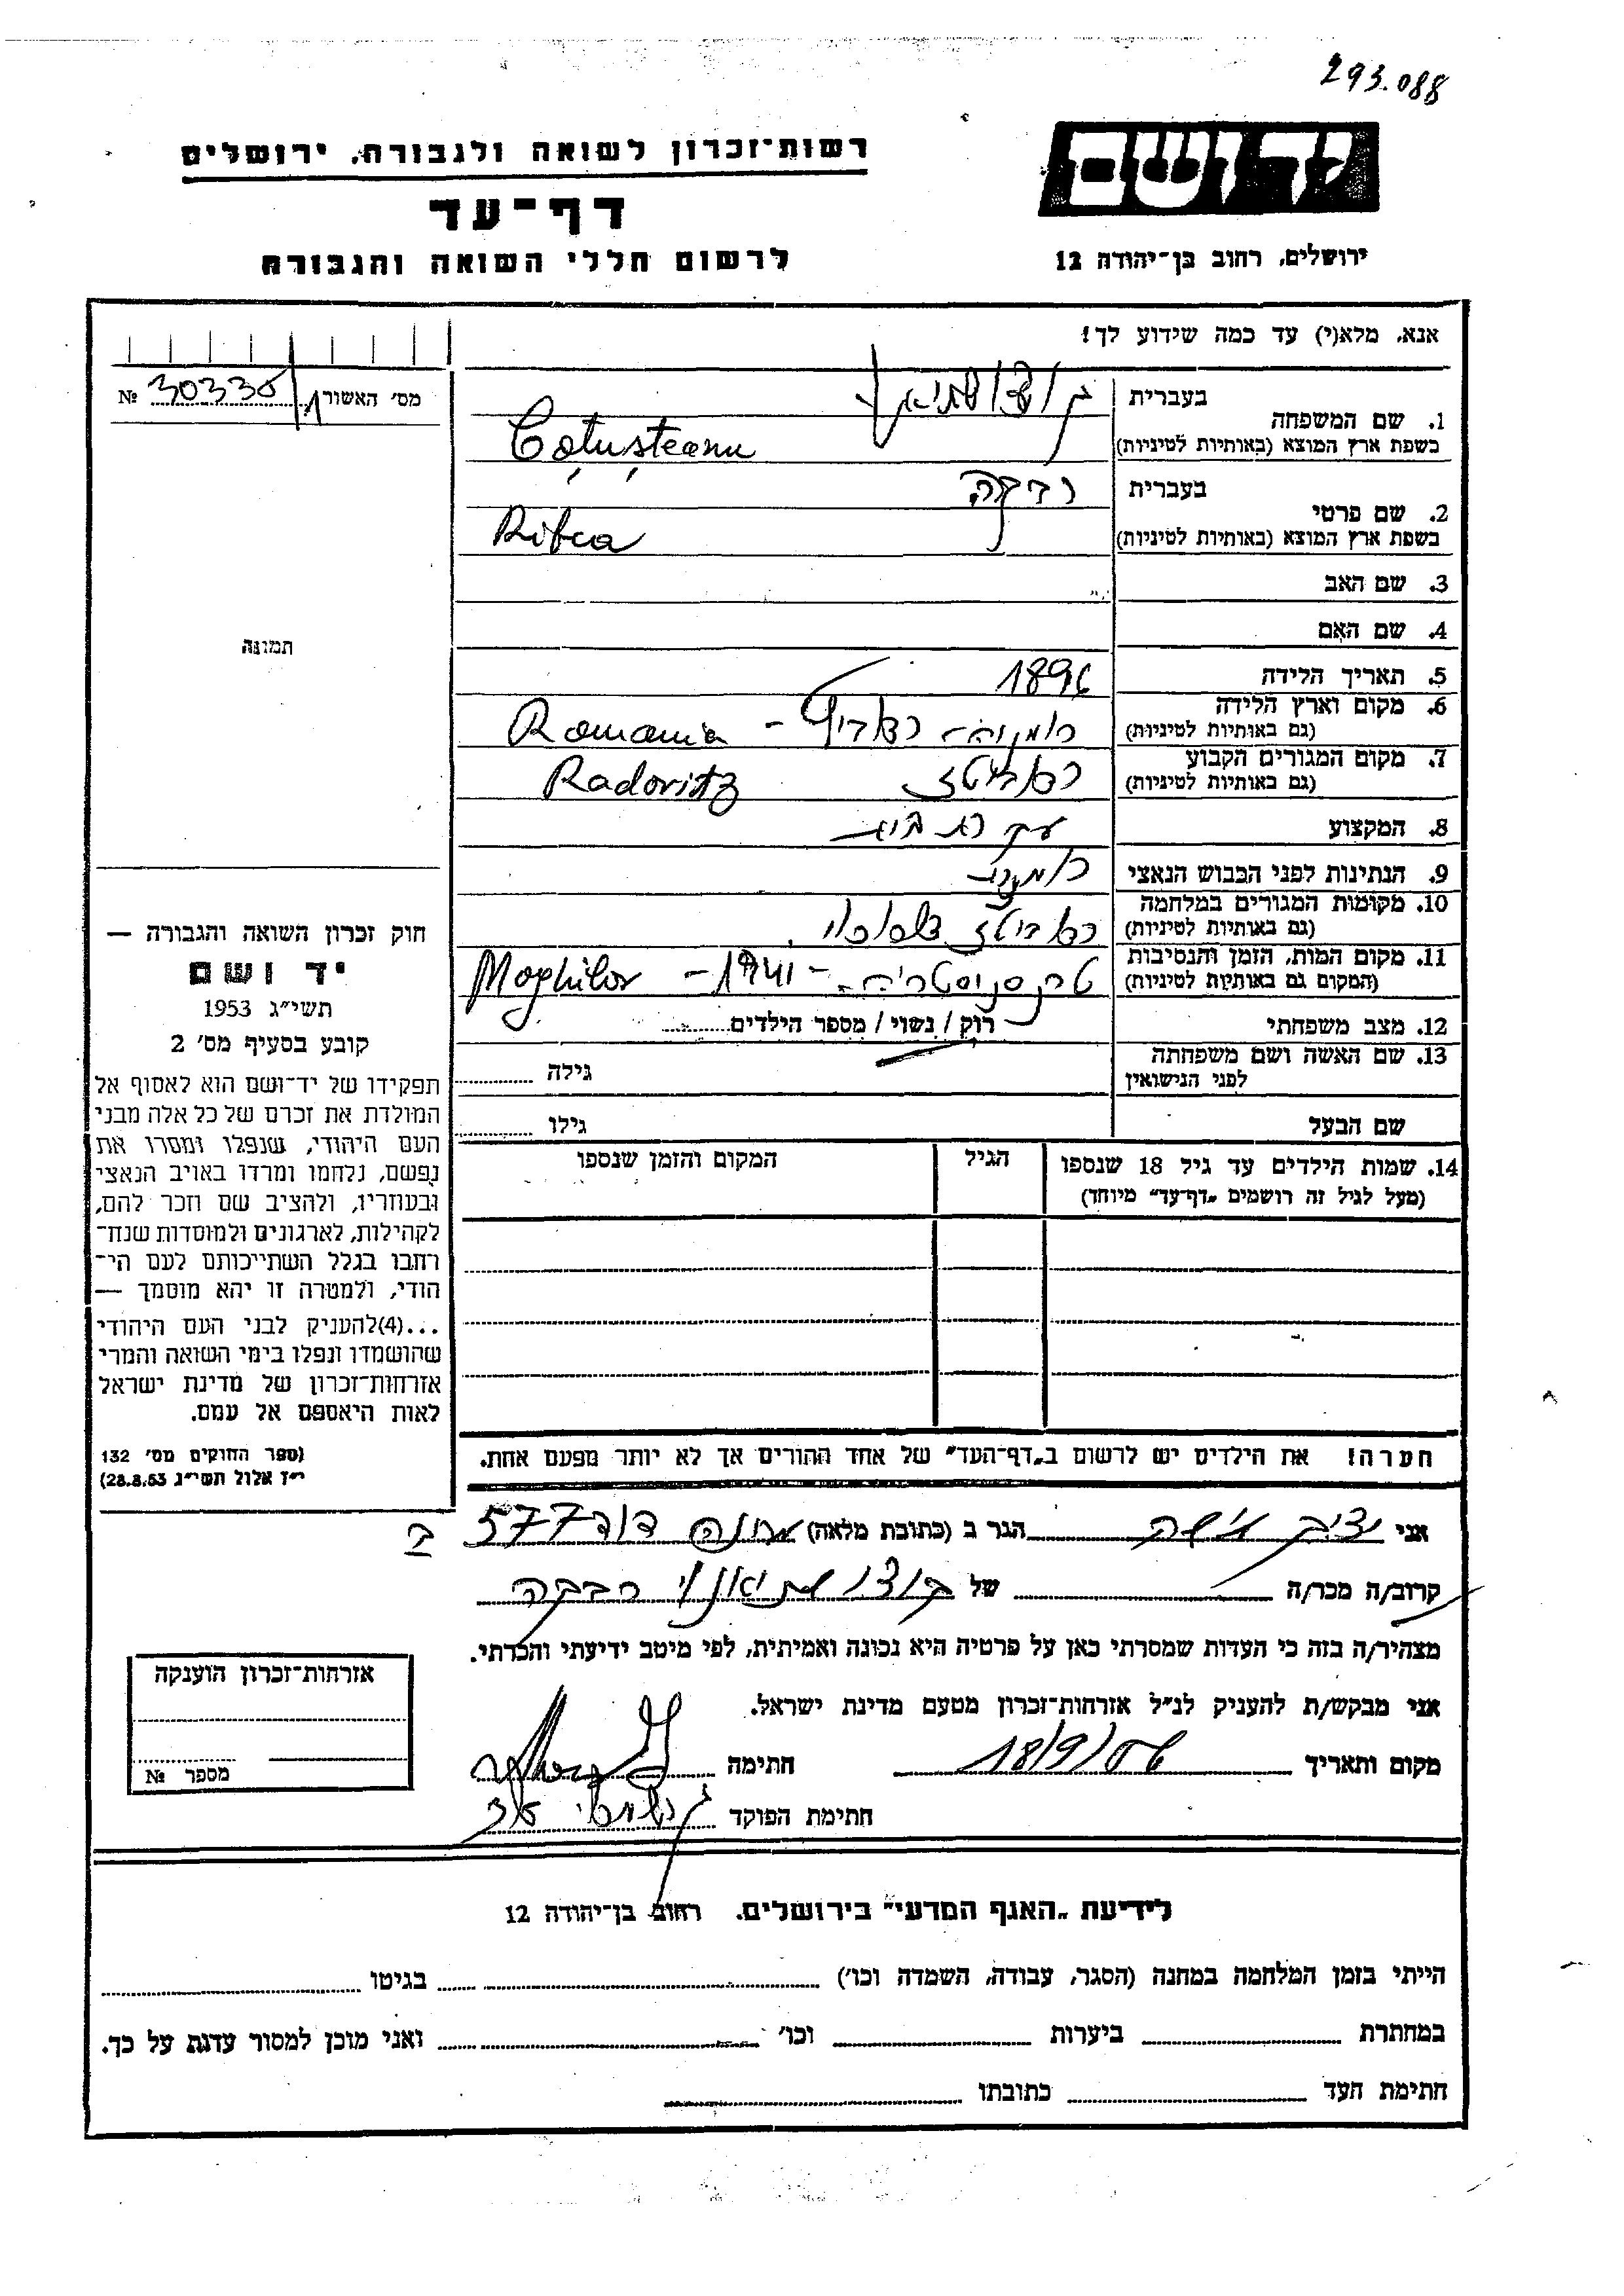 293.088
יד ושם
ירושלים, רחוב בן־יהודה 12
רשות־זכרון לשואה ולגבורה, ירושלים
דף־עד
לרשום חללי השואה והגבורה
אנא, מלא(י) עד כמה שידוע לך!
מס׳ האשור № 30330
1. שם המשפחה
בעברית
בשפת ארץ המוצא (באותיות לטיניות) Coțușteanu
2. שם פרטי
בעברית רבקה
בשפת ארץ המוצא (באותיות לטיניות) Rifca
3. שם האב
4. שם האם
5. תאריך הלידה 1896
6. מקום וארץ הלידה
(גם באותיות לטיניות) רומניה - Romania
7. מקום המגורים הקבוע
(גם באותיות לטיניות) Radovitz
8. המקצוע עקרת בית
9. הנתינות לפני הכבוש הנאצי רומנית
10. מקומות המגורים במלחמה
(גם באותיות לטיניות)
11. מקום המות, הזמן והנסיבות
(המקום גם באותיות לטיניות) טרנסניסטריה - 1941 - Moghilov
12. מצב משפחתי רוק / נשוי / מספר הילדים
13. שם האשה ושם משפחתה
לפני הנישואין גילה
שם הבעל גילו
14. שמות הילדים עד גיל 18 שנספו
(מעל לגיל זה רושמים „דף־עד״ מיוחד)
הגיל
המקום והזמן שנספו
תמונה
חוק זכרון השואה והגבורה —
יד ושם
תשי״ג 1953
קובע בסעיף מס׳ 2
תפקידו של יד־ושם הוא לאסוף אל
המולדת את זכרם של כל אלה מבני
העם היהודי, שנפלו ומסרו את
נפשם, נלחמו ומרדו באויב הנאצי
ובעוזריו, ולהציב שם וזכר להם,
לקהילות, לארגונים ולמוסדות שנח־
רבו בגלל השתייכותם לעם הי־
הודי, ולמטרה זו יהא מוסמך —
...(4)להעניק לבני העם היהודי
שהושמדו ונפלו בימי השואה והמרי
אזרחות־זכרון של מדינת ישראל
לאות היאספם אל עמם.
(ספר החוקים מס׳ 132
י״ז אלול תשי״ג 28.8.53)
הערה! את הילדים יש לרשום ב„דף־העד״ של אחד ההורים אך לא יותר מפעם אחת.
אני הגר ב (כתובת מלאה) 577
קרוב/ה מכר/ה של רבקה
מצהיר/ה בזה כי העדות שמסרתי כאן על פרטיה היא נכונה ואמיתית, לפי מיטב ידיעתי והכרתי.
אני מבקש/ת להעניק לנ״ל אזרחות־זכרון מטעם מדינת ישראל.
מקום ותאריך 18/9/56 חתימה
חתימת הפוקד
אזרחות־זכרון הוענקה
מספר №
לידיעת „האגף המדעי״ בירושלים, רחוב בן־יהודה 12
הייתי בזמן המלחמה במחנה (הסגר, עבודה, השמדה וכו׳) בגיטו
במחתרת ביערות וכו׳ ואני מוכן למסור עדות על כך.
חתימת העד כתובתו